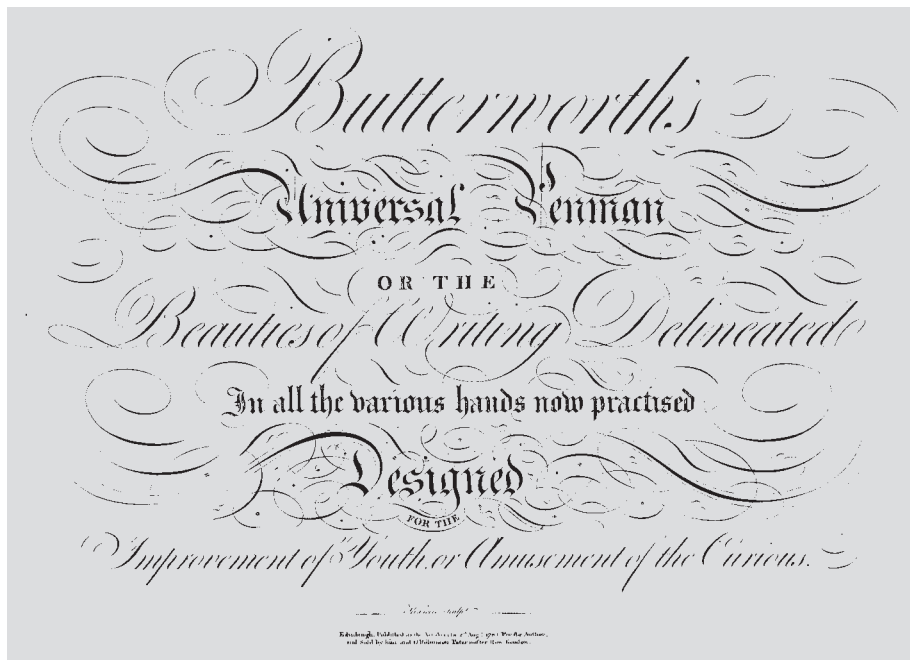 Butterworth's
Universal Penman
OR THE
Beauties of Writing Delineated
In all the various hands now practised
Designed
FOR THE
Improvement of Youth, or Amusement of the Curious.
sculpt
Edinburgh, Published as the Act directs Augt For the Author,
and Sold by him and Paternoster Row London.